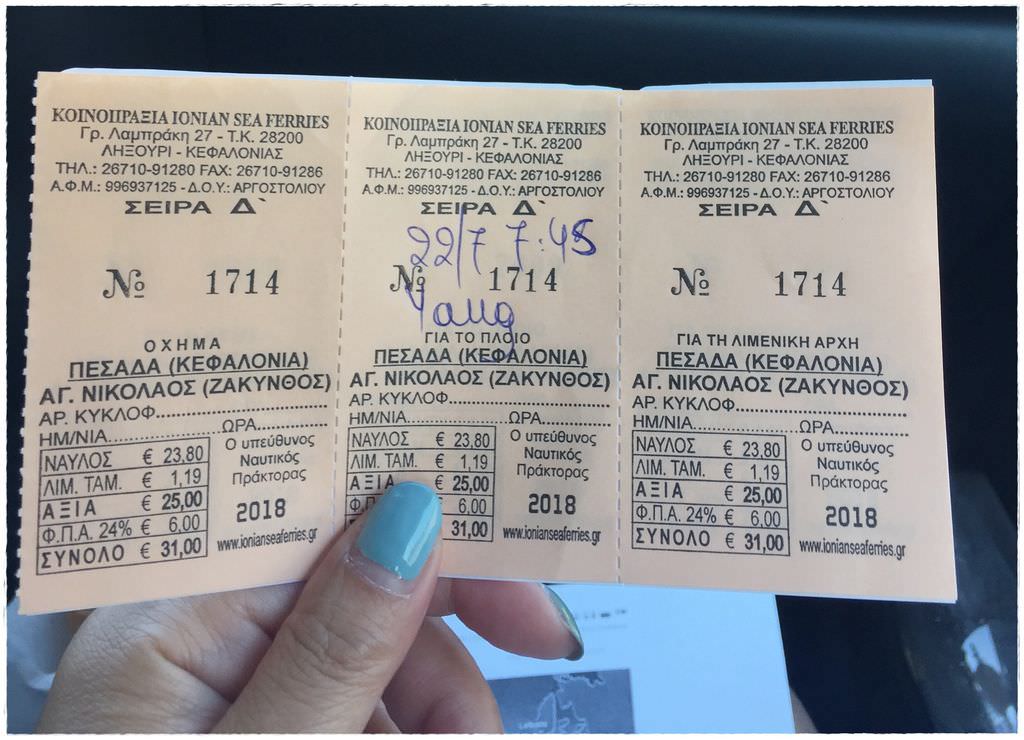 ΚΟΙΝΟΠΡΑΞΙΑ IONIAN SEA FERRIES
Γρ. Λαμπράκη 27 - Τ.Κ. 28200
ΛΗΞΟΥΡΙ - ΚΕΦΑΛΟΝΙΑΣ
ΤΗΛ.: 26710-91280 FAX: 26710-91286
Α.Φ.Μ.: 996937125 - Δ.Ο.Υ.: ΑΡΓΟΣΤΟΛΙΟΥ
ΣΕΙΡΑ Δ`
№ 1714
ΟΧΗΜΑ
ΠΕΣΑΔΑ (ΚΕΦΑΛΟΝΙΑ)
ΑΓ. ΝΙΚΟΛΑΟΣ (ΖΑΚΥΝΘΟΣ)
ΑΡ. ΚΥΚΛΟΦ.
ΗΜ/ΝΙΑ ΩΡΑ
ΝΑΥΛΟΣ € 23,80
ΛΙΜ. ΤΑΜ. € 1,19
ΑΞΙΑ € 25,00
Φ.Π.Α. 24% € 6,00
ΣΥΝΟΛΟ € 31,00
Ο υπεύθυνος
Ναυτικός
Πράκτορας
2018
www.ionianseaferries.gr
ΚΟΙΝΟΠΡΑΞΙΑ IONIAN SEA FERRIES
Γρ. Λαμπράκη 27 - Τ.Κ. 28200
ΛΗΞΟΥΡΙ - ΚΕΦΑΛΟΝΙΑΣ
ΤΗΛ.: 26710-91280 FAX: 26710-91286
Α.Φ.Μ.: 996937125 - Δ.Ο.Υ.: ΑΡΓΟΣΤΟΛΙΟΥ
ΣΕΙΡΑ Δ`
22/7 7:45
№ 1714
Yang
ΓΙΑ ΤΟ ΠΛΟΙΟ
ΠΕΣΑΔΑ (ΚΕΦΑΛΟΝΙΑ)
ΑΓ. ΝΙΚΟΛΑΟΣ (ΖΑΚΥΝΘΟΣ)
ΑΡ. ΚΥΚΛΟΦ.
ΗΜ/ΝΙΑ ΩΡΑ
ΝΑΥΛΟΣ € 23,80
ΛΙΜ. ΤΑΜ. € 1,19
ΑΞΙΑ € 25,00
Φ.Π.Α. 6,00
31,00
Ο υπεύθυνος
Ναυτικός
Πράκτορας
2018
www.ionianseaferries.gr
ΚΟΙΝΟΠΡΑΞΙΑ IONIAN SEA FERRIES
Γρ. Λαμπράκη 27 - Τ.Κ. 28200
ΛΗΞΟΥΡΙ - ΚΕΦΑΛΟΝΙΑΣ
ΤΗΛ.: 26710-91280 FAX: 26710-91286
Α.Φ.Μ.: 996937125 - Δ.Ο.Υ.: ΑΡΓΟΣΤΟΛΙΟΥ
ΣΕΙΡΑ Δ`
№ 1714
ΓΙΑ ΤΗ ΛΙΜΕΝΙΚΗ ΑΡΧΗ
ΠΕΣΑΔΑ (ΚΕΦΑΛΟΝΙΑ)
ΑΓ. ΝΙΚΟΛΑΟΣ (ΖΑΚΥΝΘΟΣ)
ΑΡ. ΚΥΚΛΟΦ.
ΗΜ/ΝΙΑ ΩΡΑ
ΝΑΥΛΟΣ € 23,80
ΛΙΜ. ΤΑΜ. € 1,19
ΑΞΙΑ € 25,00
Φ.Π.Α. 24% € 6,00
ΣΥΝΟΛΟ € 31,00
Ο υπεύθυνος
Ναυτικός
Πράκτορας
2018
www.ionianseaferries.gr